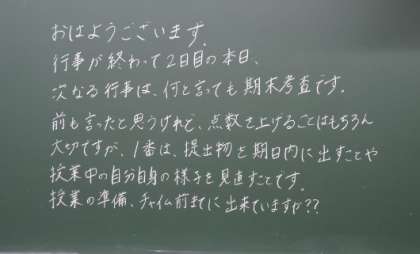 おはようございます。
行事が終わって2日目の本日、
次なる行事は、何と言っても期末考査です。
前も言ったと思うけれど、点数を上げることはもちろん
大切ですが、1番は、提出物を期日内に出すことや
授業中の自分自身の様子を見直すことです。
授業の準備、チャイム前までに出来ていますか??